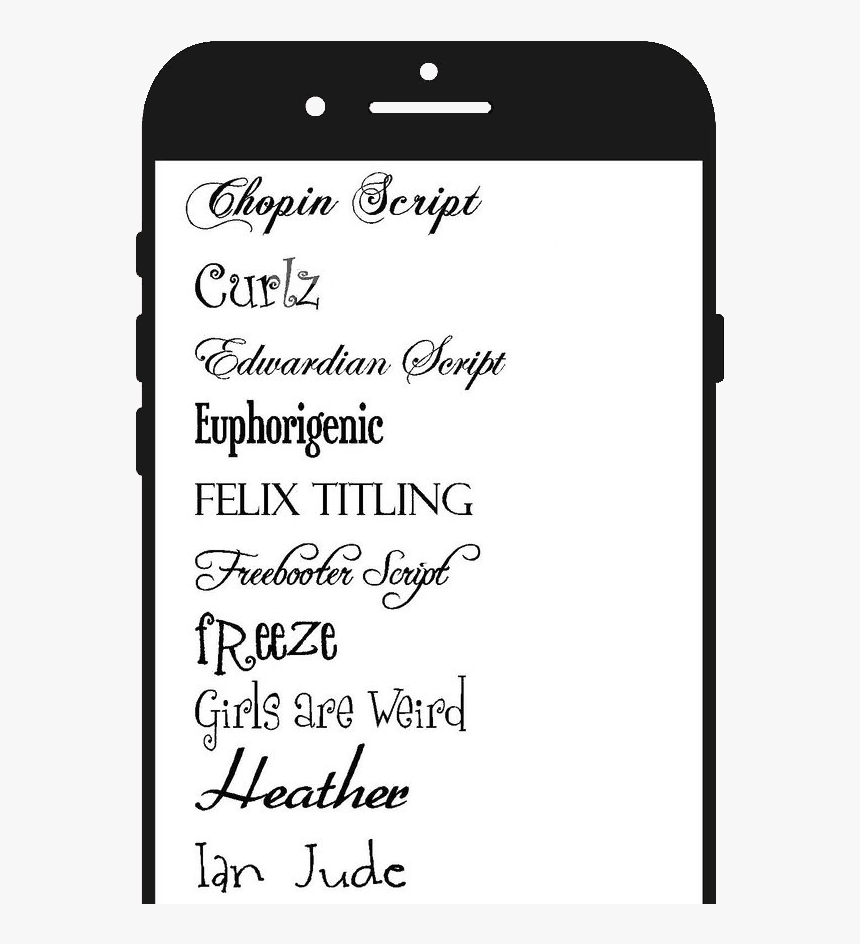 Chopin Script
Curlz
Edwardian Script
Euphorigenic
FELIX TITLING
Freebooter Script
fReeze
Girls are Weird
Heather
Ian Jude